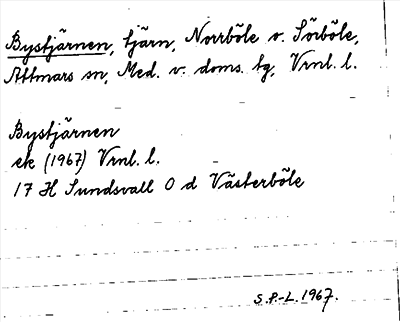 Bystjärnen, tjärn, Norrböle o. Sörböle,
Attmars sn, Med. v. doms. tg, Vrnl. l.
Bystjärnen
ek (1967) Vrnl. l.
17 H Sundsvall O d Västerböle
S.P.-L. 1967.